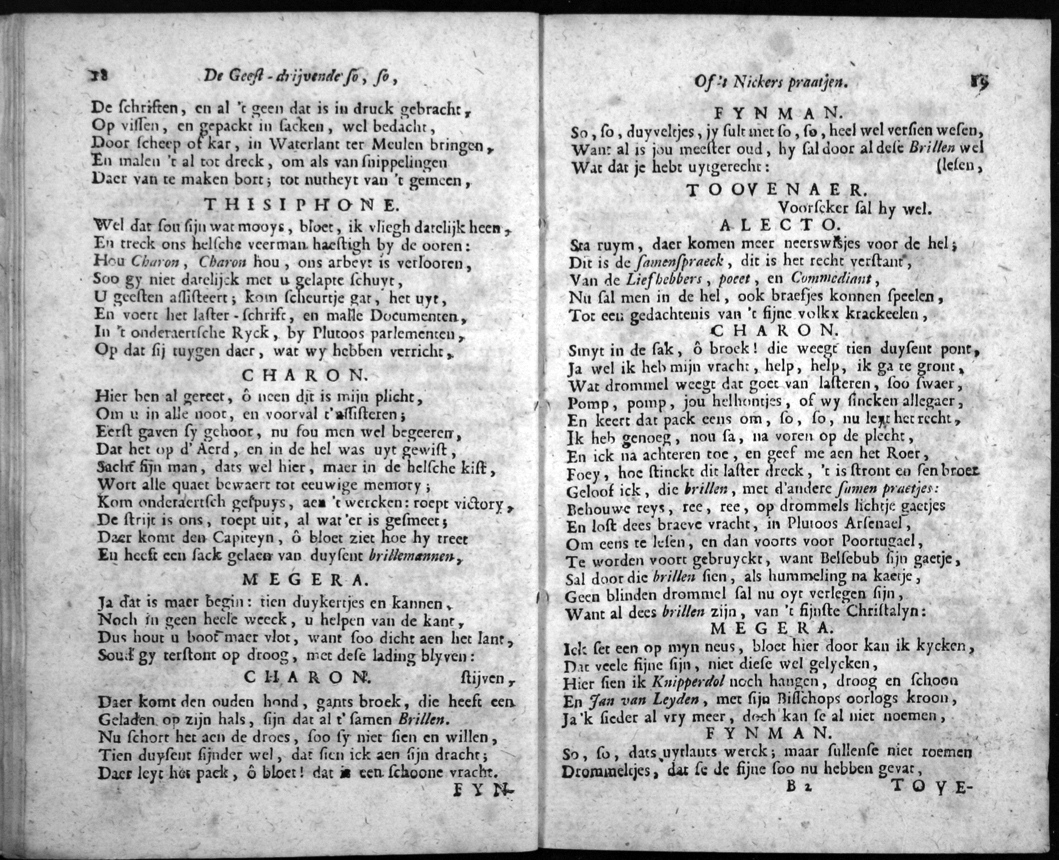 18 De Geeſt-drijvende ſo, ſo,
De ſchriften, en al 't geen dat is in druck gebracht,
Op viſſen, en gepackt in ſacken, wel bedacht,
Door ſcheep of kar, in Waterlant ter Meulen bringen,
En malen 't al tot dreck, om als van ſnippelingen
Daer van te maken bort; tot nutheyt van 't gemeen,
THISIPHONE.
Wel dat ſou ſijn wat mooys, bloet, ik vliegh datelijk heen,
En treck ons helſche veerman haeſtigh by de ooren:
Hou Charon, Charon hou, ons arbeyt is verlooren,
Soo gy niet datelijck met u gelapte ſchuyt,
U geeſten aſſiſteert; kom ſcheurtje gar, het uyt,
En voert het laſter-ſchrift, en maſſe Documenten,
In 't onderaertſche Ryck, by Plutoos parlementen,
Op dat ſij tuygen daer, wat wy hebben verricht,
CHARON.
Hier ben al gereet, ô neen dit is mijn plicht,
Om u in alle noot, en voorval t'aſſiſteren;
Eerſt gaven ſy gehoor, nu ſou men wel begeeren,
Dat het op d'Aerd, en in de hel was uyt gewiſt,
Sacht ſijn man, dats wel hier, maer in de helſche kiſt,
Wort alle quaet bewaert tot eeuwige memory;
Kom onderaertſch geſpuys, aen 't wercken: roept victory,
De ſtrijt is ons, roept uit, al wat 'er is geſmeet;
Daer komt den Capiteyn, ô bloet ziet hoe hy treet
En heeft een ſack gelaen van duyſent brillemannen,
MEGERA.
Ja dat is maer begin: tien duykertjes en kannen,
Noch in geen heele weeck, u helpen van de kant,
Dus hout u boot maer vlot, want ſoo dicht aen het lant,
Soud gy terſtont op droog, met deſe lading blyven:
CHARON. ſtijven,
Daer komt den ouden hond, gants broek, die heeft een
Geladen op zijn hals, ſijn dat al t'ſamen Brillen.
Nu ſchort het aen de droes, ſoo ſy niet ſien en willen,
Tien duyſent ſijnder wel, dat ſien ick aen ſijn dracht;
Daer leyt het pack, ô bloet! dat is een ſchoone vracht.
FYN-
Of 't Nickers praatjen. 19
FYNMAN.
So, ſo, duyveltjes, jy ſult met ſo, ſo, heel wel verſien weſen,
Want al is jou meeſter oud, hy ſal door al deſe Brillen wel
Wat dat je hebt uytgerecht: (leſen,
TOOVENAER.
Voorſeker ſal hy wel.
ALECTO.
Sta ruym, daer komen meer neerswiſjes voor de hel;
Dit is de ſamenſpraeck, dit is het recht verſtant,
Van de Liefhebbers, poeet, en Commediant,
Nu ſal men in de hel, ook braefjes konnen ſpeelen,
Tot een gedachtenis van 't fijne volkx krackeelen,
CHARON.
Smyt in de ſak, ô broek! die weegt tien duyſent pont,
Ja wel ik heb mijn vracht, help, help, ik ga te gront,
Wat drommel weegt dat goet van laſteren, ſoo ſwaer,
Pomp, pomp, jou helhontjes, of wy ſincken allegaer,
En keert dat pack eens om, ſo, ſo, nu leyt het recht,
Ik heb genoeg, nou ſa, na voren op de plecht,
En ick na achteren toe, en geef me aen het Roer,
Foey, hoe ſtinckt dit laſter dreck, 't is ſtront en ſen broer
Geloof ick, die brillen, met d'andere ſamen praetjes:
Behouwe reys, ree, ree, op drommels lichtje gaetjes
En loſt dees braeve vracht, in Plutoos Arſenael,
Om eens te leſen, en dan voorts voor Poortugael,
Te worden voort gebruyckt, want Belſebub ſijn gaetje,
Sal door die brillen ſien, als hummeling na kaetje,
Geen blinden drommel ſal nu oyt verlegen ſijn,
Want al dees brillen zijn, van 't ſijnſte Chriſtalyn:
MEGERA.
Ick ſet een op myn neus, bloet hier door kan ik kycken,
Dat veele fijne ſijn, niet dieſe wel gelycken,
Hier ſien ik Knipperdol noch hangen, droog en ſchoon
En Jan van Leyden, met ſijn Biſſchops oorlogs kroon,
Ja'k ſieder al vry meer, doch kan ſe al niet noemen,
FYNMAN.
So, ſo, dats uytlants werck; maar ſullenſe niet roemen
Drommeltjes, dat ſe de fijne ſoo nu hebben gevat,
B 2 TOVE-